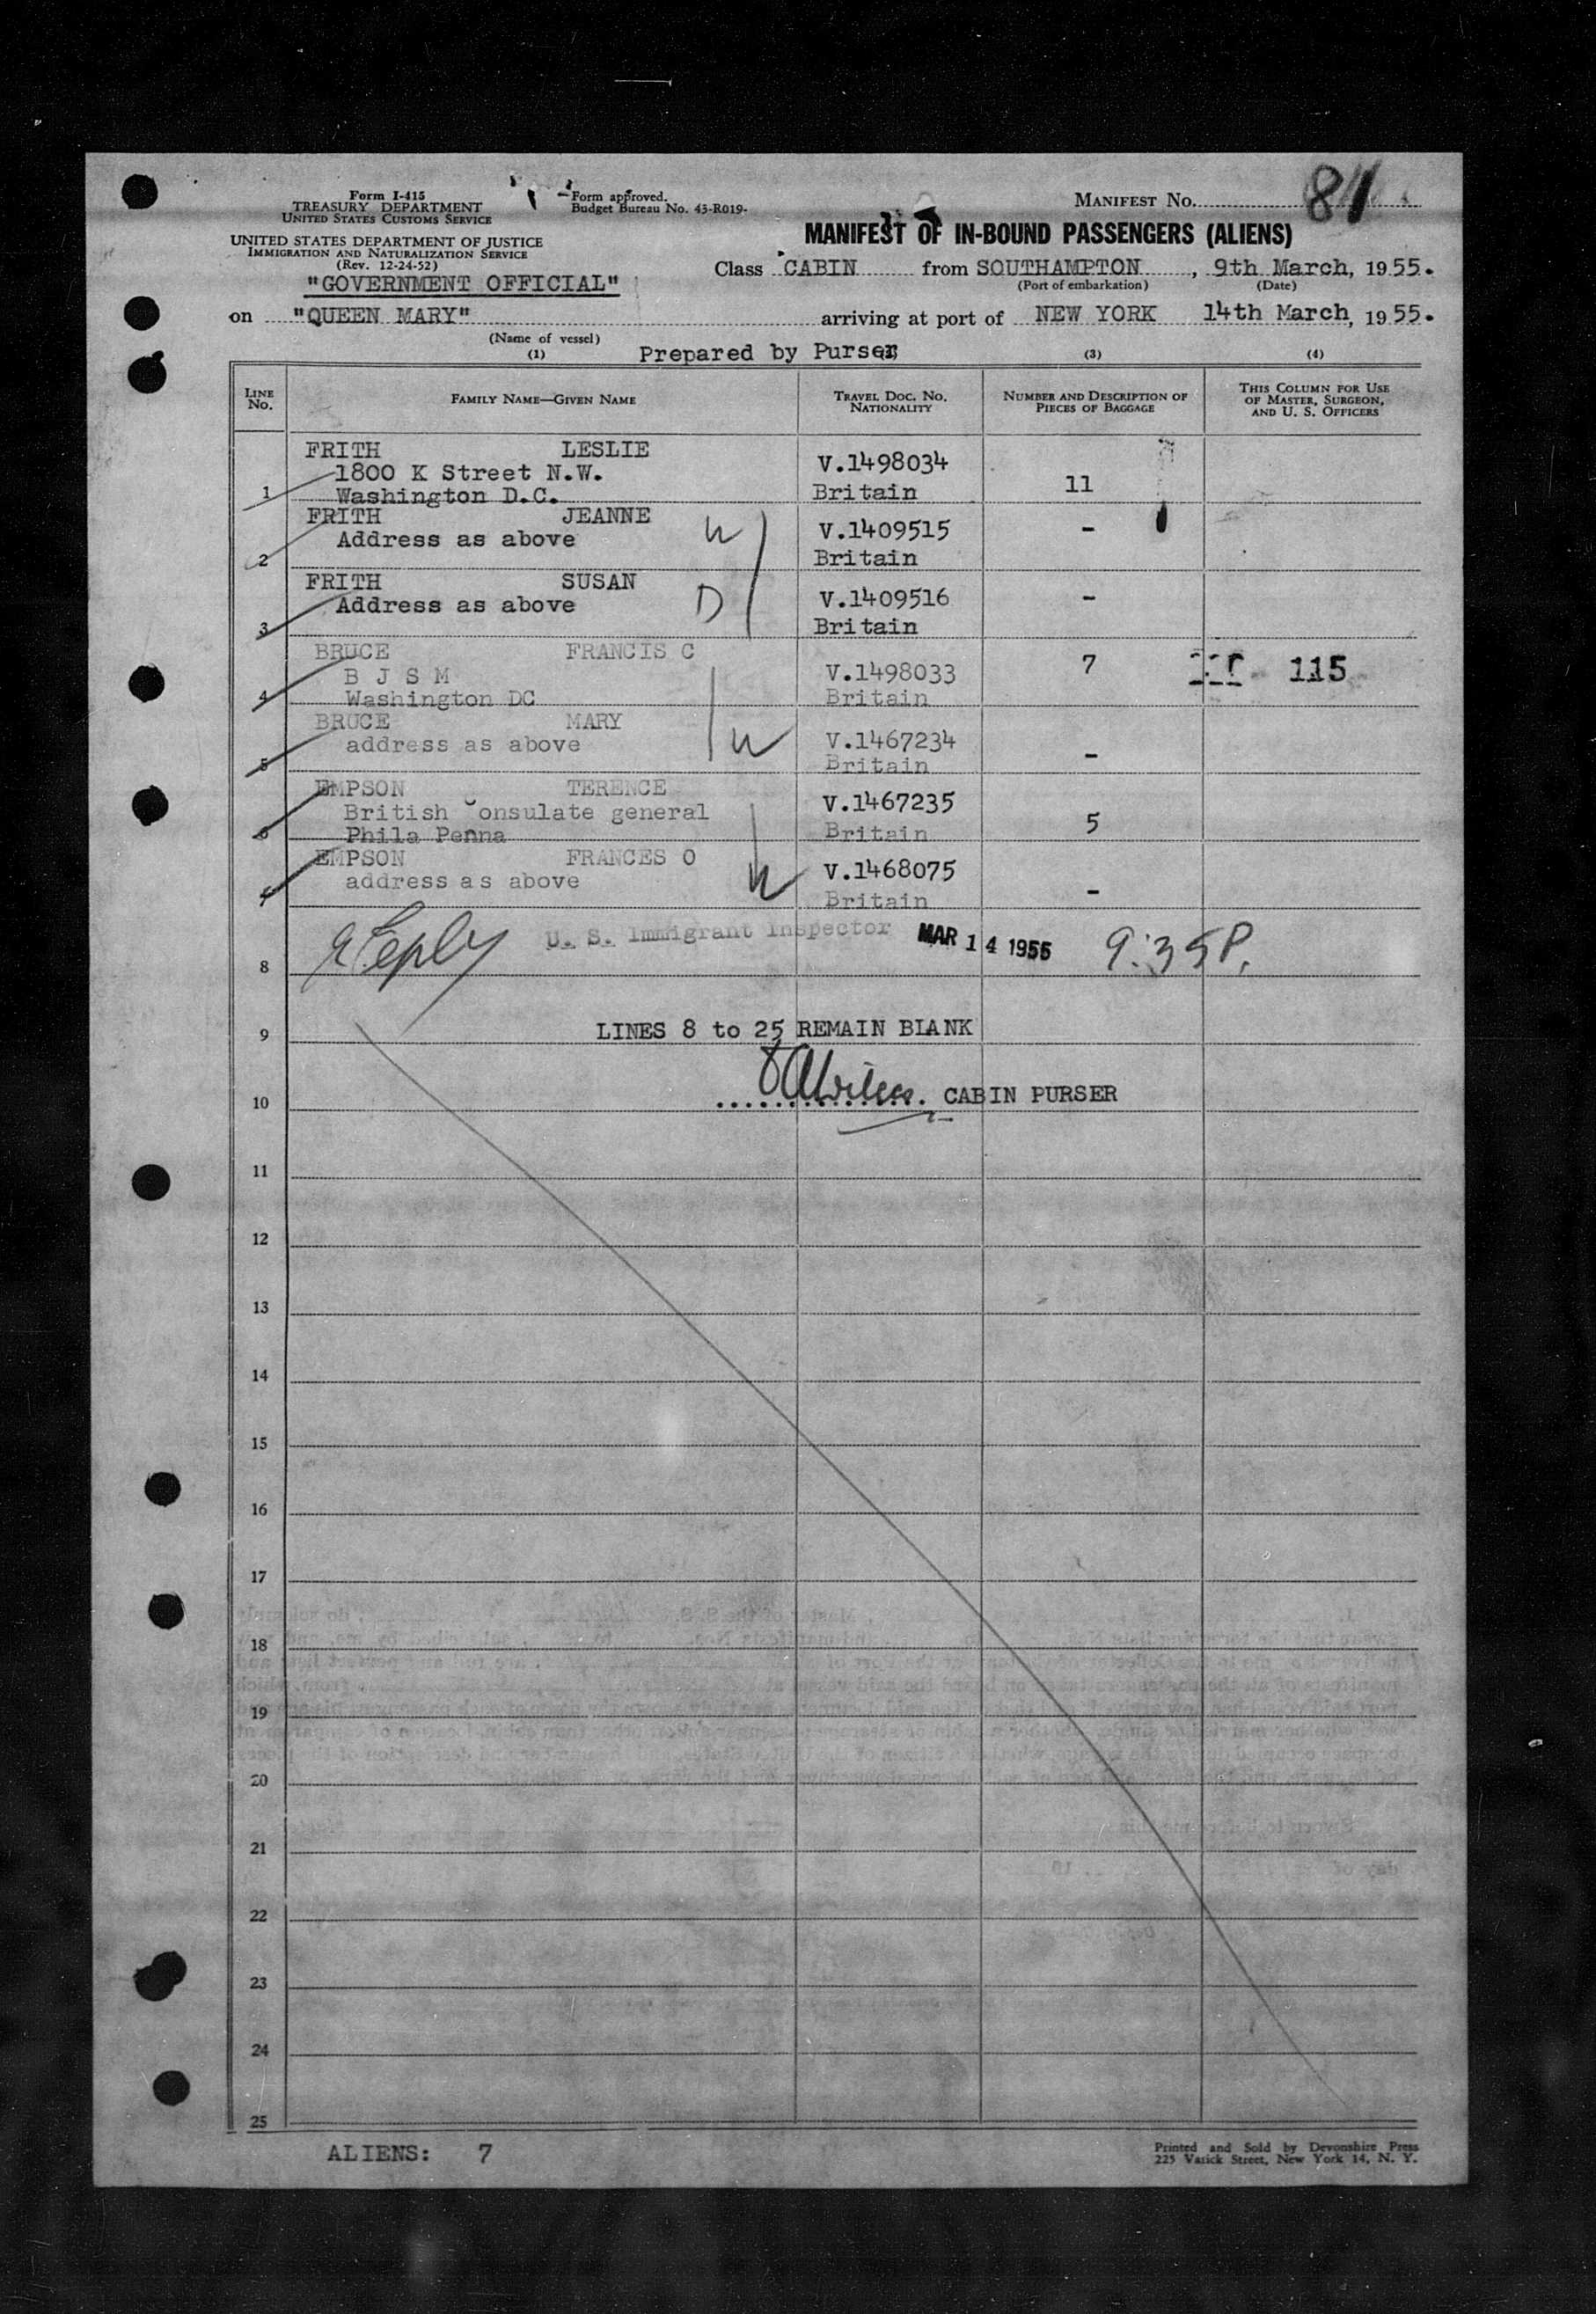 Form I-415
TREASURY DEPARTMENT
UNITED STATES CUSTOMS SERVICE
Form approved.
Budget Bureau No. 43-R019-
MANIFEST No. 81
UNITED STATES DEPARTMENT OF JUSTICE
IMMIGRATION AND NATURALIZATION SERVICE
(Rev. 12-24-52)
MANIFEST OF IN-BOUND PASSENGERS (ALIENS)
"GOVERNMENT OFFICIAL"
Class CABIN from SOUTHAMPTON, 9th March, 1955.
(Port of embarkation) (Date)
on "QUEEN MARY" arriving at port of NEW YORK 14th March, 1955.
(Name of vessel)
(1) Prepared by Purser (3) (4)
LINE No. FAMILY NAME—GIVEN NAME TRAVEL DOC. NO. NATIONALITY NUMBER AND DESCRIPTION OF PIECES OF BAGGAGE THIS COLUMN FOR USE OF MASTER, SURGEON, AND U. S. OFFICERS
FRITH LESLIE V.1498034
1800 K Street N.W.
1 Washington D.C. Britain 11
FRITH JEANNE V.1409515 -
Address as above W
2 Britain
FRITH SUSAN V.1409516 -
Address as above D
3 Britain
BRUCE FRANCIS C V.1498033 7 115
B J S M
4 Washington DC Britain
BRUCE MARY V.1467234 -
address as above W
5 Britain
EMPSON TERENCE V.1467235
British Consulate general
6 Phila Penna Britain 5
EMPSON FRANCES O V.1468075
address as above W
7 Britain -
8 U. S. Immigrant Inspector MAR 14 1955 9:35P.
9 LINES 8 to 25 REMAIN BLANK
10 CABIN PURSER
11
12
13
14
15
16
17
18
19
20
21
22
23
24
25
ALIENS: 7
Printed and Sold by Devonshire Press
225 Varick Street, New York 14, N. Y.